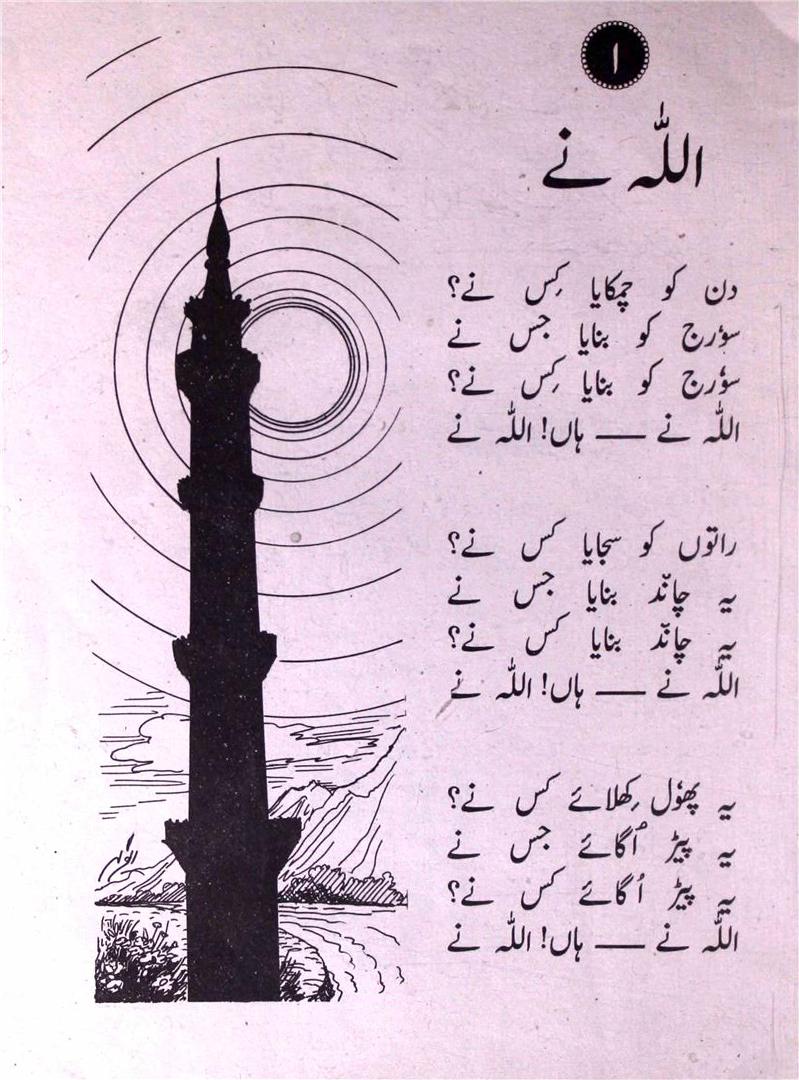 ۱
اللہ نے
دن کو چمکایا کِس نے؟
سوٗرج کو بنایا جس نے
سوٗرج کو بنایا کِس نے؟
اللہ نے — ہاں! اللہ نے
راتوں کو سجایا کس نے؟
یہ چاند بنایا جس نے
یہ چاند بنایا کس نے؟
اللہ نے — ہاں! اللہ نے
یہ پھوٗل کِھلائے کس نے؟
یہ پیڑ اُگائے جس نے
یہ پیڑ اُگائے کس نے؟
اللہ نے — ہاں! اللہ نے